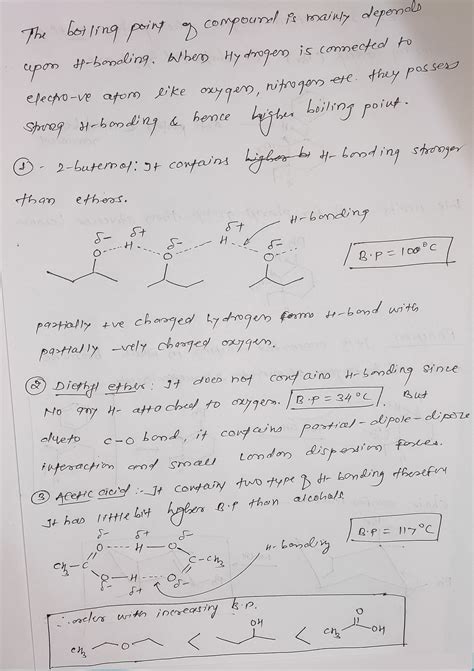 The boiling point of compound is mainly depends
upon H-bonding. When Hydrogen is connected to
electro-ve atom like oxygen, nitrogen etc. they possess
strong H-bonding & hence higher boiling point.
① - 2-butanol: It contains higher b H-bonding stronger
than ethers.
H-bonding
δ- δ+ δ- δ+ δ-
O H O H O
B.P = 100°C
partially +ve charged hydrogen forms H-bond with
partially -vely charged oxygen.
② Diethyl ether: It does not contains H-bonding since
No any H- attached to oxygen. B.P = 34°C. But
dueto C-O bond, it contains partial-dipole-dipole
interaction and small London dispersion forces.
③ Acetic acid :- It contains two type of H-bonding therefore
It has little bit higher B.P than alcohols
B.P = 117°C
δ- δ+ δ-
O --- H - O
CH3 - C C - CH3
O - H --- O
δ- δ+ δ-
H-bonding
∴ order with increasing B.P.
O < OH < CH3 O OH